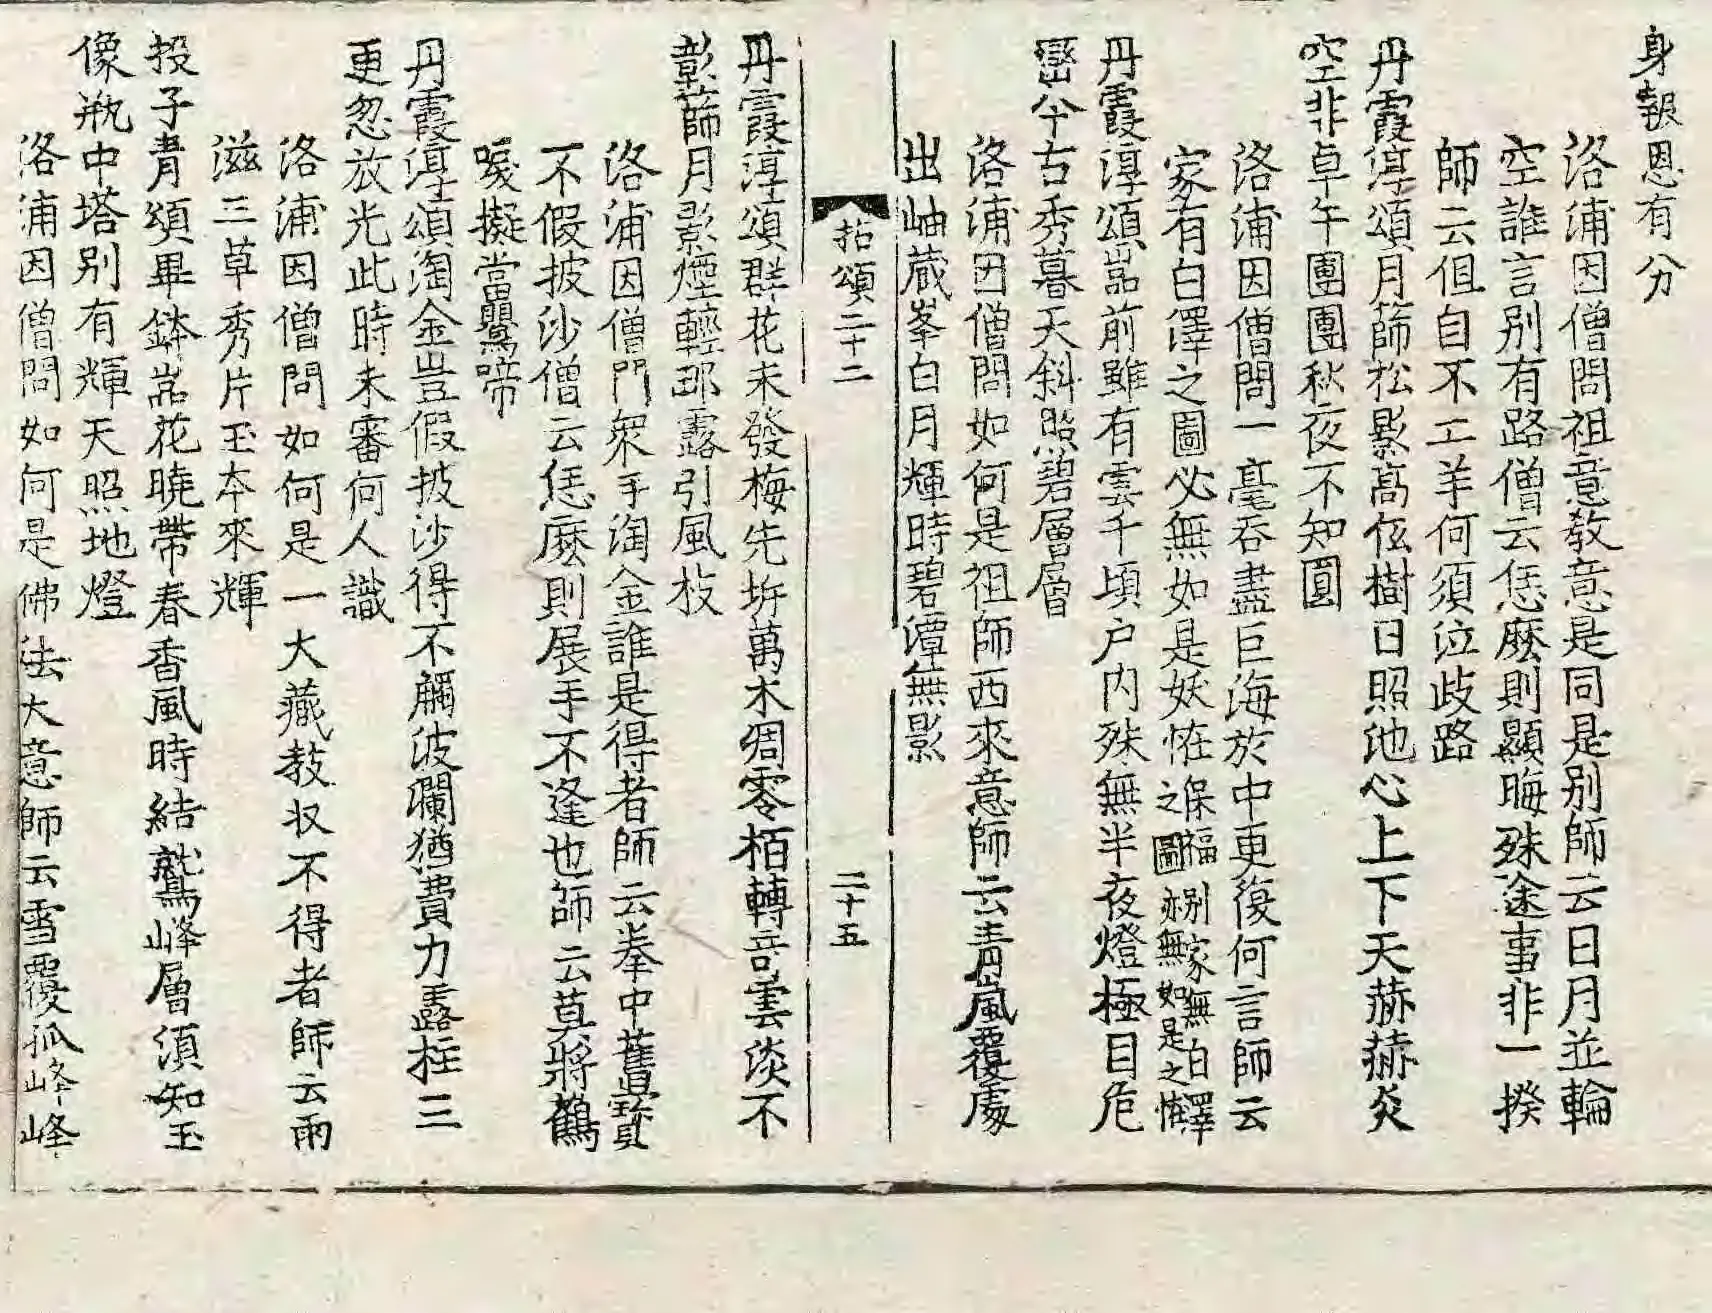 身報恩有分
洛浦因僧問祖意教意是同是别師云日月並輪
空誰言别有路僧云恁麽則顯晦殊途事非一揆
師云但自不亡羊何須泣歧路
丹霞淳頌月篩松影高低樹日照池心上下天赫赫炎
空非卓午團團秋夜不知圓
洛浦因僧問一毫吞盡巨海於中更復何言師云
家有白澤之圖必無如是妖恠保福别家無白澤之圖亦無如是之恠
丹霞淳頌嵓前雖有雲千頃户内殊無半夜燈極目危
巒今古秀暮天斜照碧層層
洛浦因僧問如何是祖師西來意師云青嵐覆處
出岫藏峯白月輝時碧潭無影
拈頌二十二 二十五
丹霞淳頌群花未發梅先坼萬木凋零栢轉奇雲淡不
彰篩月影煙輕那露引風枝
洛浦因僧門衆手淘金誰是得者師云拳中舊寳
不假披沙僧云恁麽則展手不逢也師云莫將鶴
唳擬當鸎啼
丹霞淳頌淘金豈假披沙得不觸波瀾猶費力露柱三
更忽放光此時未審何人識
洛浦因僧問如何是一大藏教収不得者師云雨
滋三草秀片玉本來輝
投子青頌畢鉢嵓花曉帶春香風時結鷲峰層須知玉
像瓶中塔别有輝天照地燈
洛浦因僧問如何是佛法大意師云雪覆孤峰峰